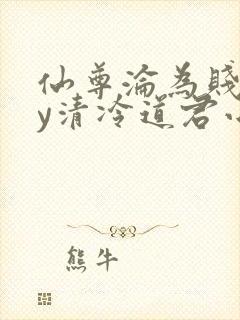 仙尊淪為賤
y清冷道君
熊牛